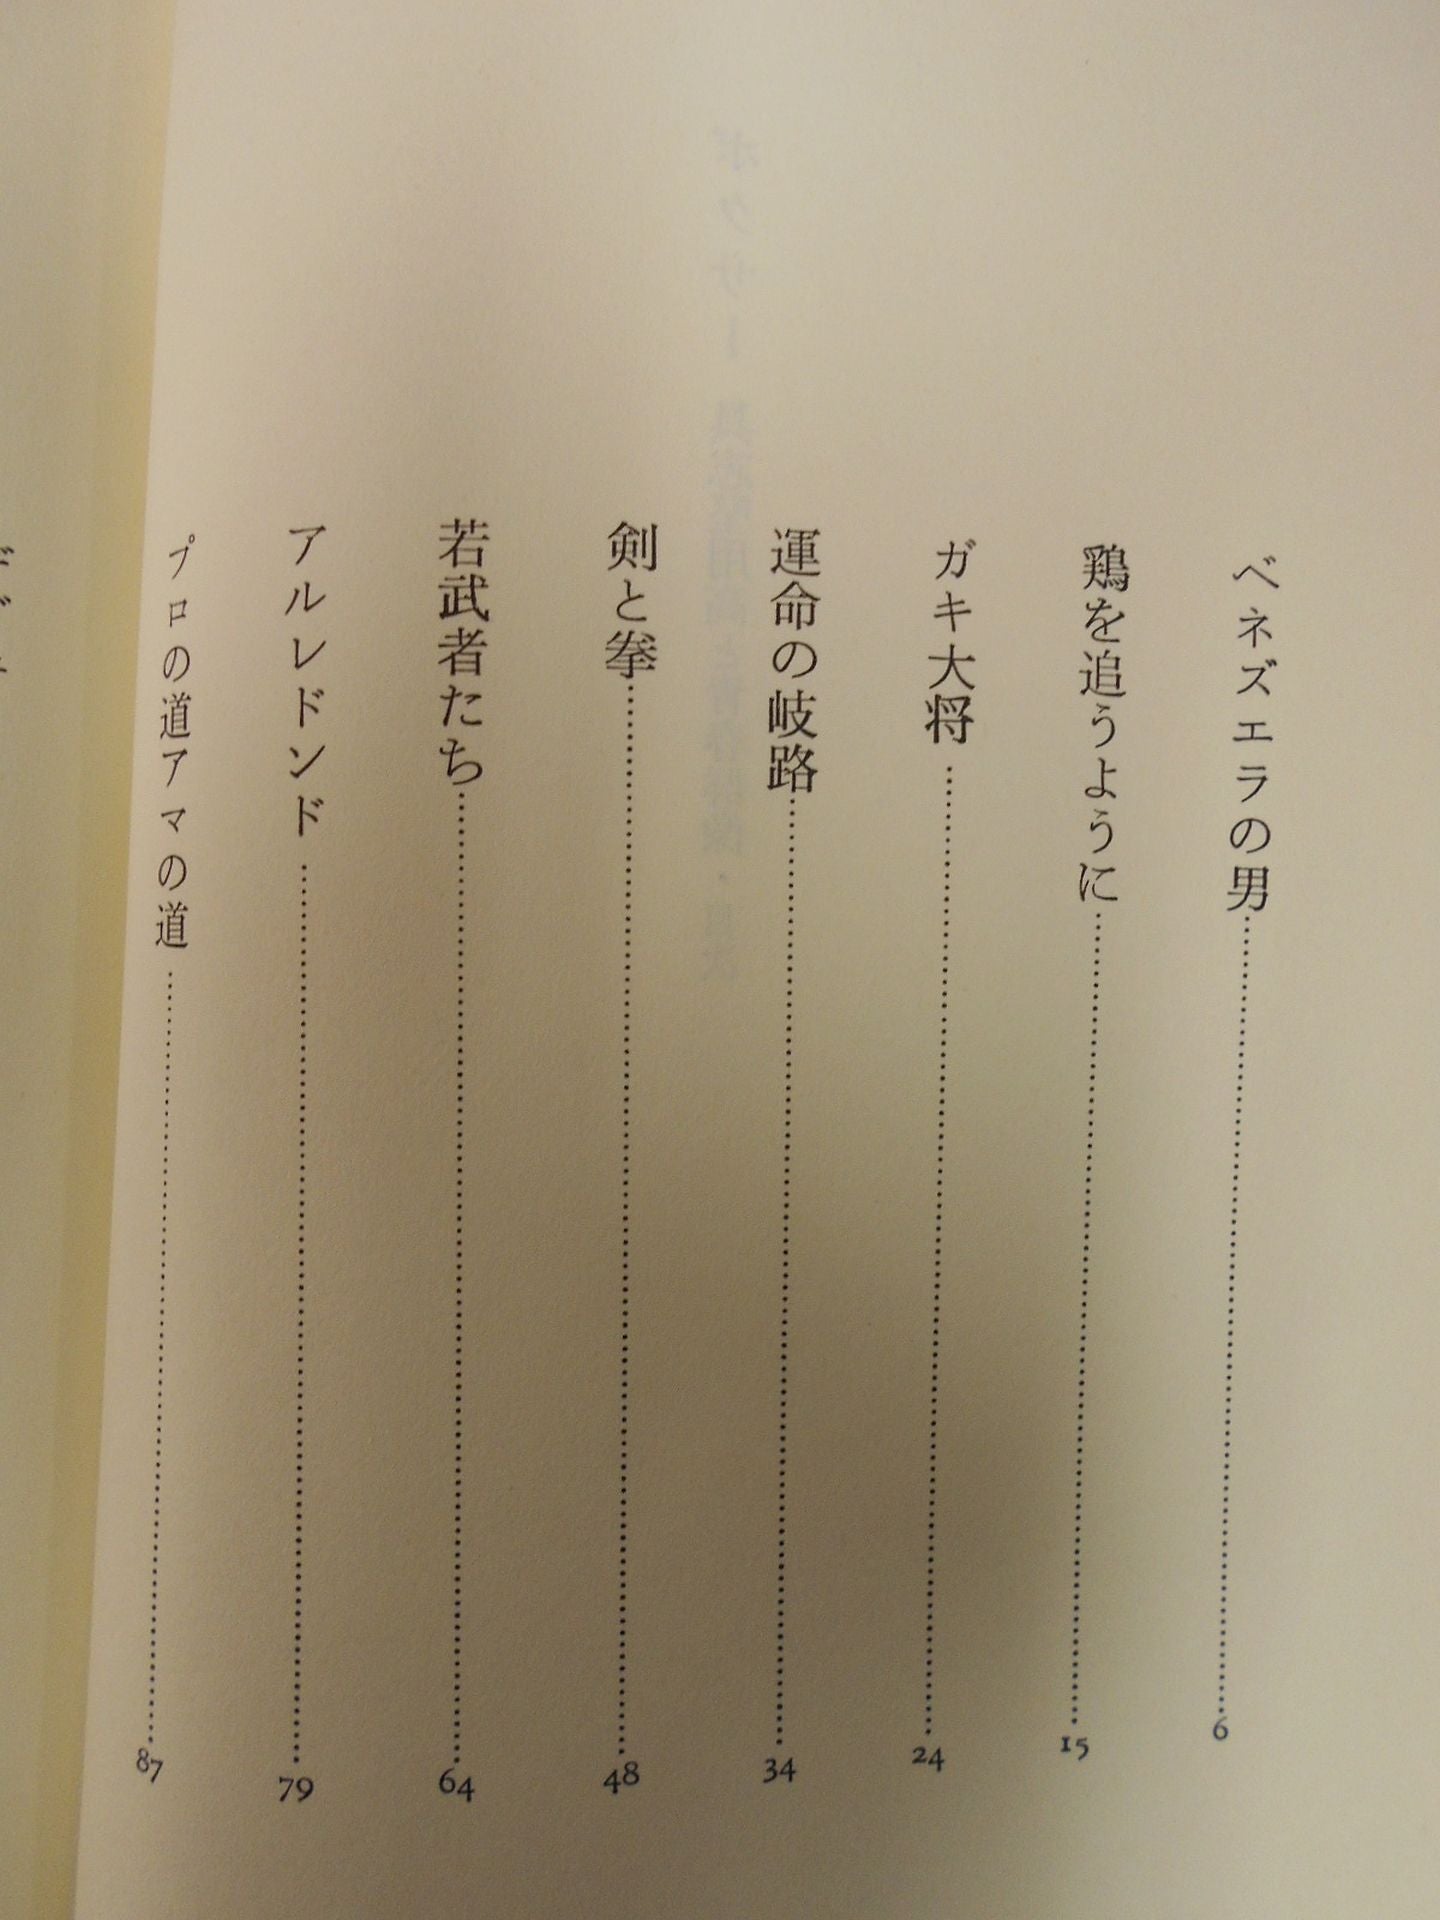 ベネズエラの男……6
鶏を追うように……15
ガキ大将……24
運命の岐路……34
剣と拳……48
若武者たち……64
アルレドンド……79
プロの道アマの道……87